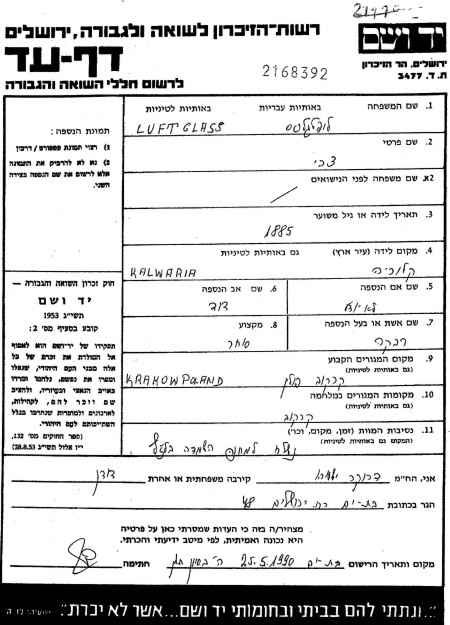 21470
יד ושם
ירושלים, הר הזיכרון
ת. ד. 3477
רשות-הזיכרון לשואה ולגבורה, ירושלים
דף-עד
לרשום חללי השואה והגבורה
2168392
תמונת הנספה:
1) רצוי תמונת פספורט/דרכון
2) נא לא להדביק את התמונה אלא לרשום את שם הנספה בצידה השני.
חוק זכרון השואה והגבורה —
יד ושם
תשי"ג 1953
קובע בסעיף מס' 2:
תפקידו של יד-ושם הוא לאסוף
אל המולדת את זכרם של כל
אלה מבני העם היהודי, שנפלו
ומסרו את נפשם, נלחמו ומרדו
באויב הנאצי ובעוזריו, ולהציב
שם וזכר להם, לקהילות,
לארגונים ולמוסדות שנחרבו בגלל
השתייכותם לעם היהודי.
(ספר החוקים מס' 132,
י"ז אלול תשי"ג 28.8.53)
1. שם המשפחה באותיות עבריות באותיות לטיניות
לופטגלס LUFTGLASS
2. שם פרטי
צבי
2א. שם משפחה לפני הנישואים
3. תאריך לידה או גיל משוער
1885
4. מקום לידה (עיר ארץ) גם באותיות לטיניות
קלוריה KALWARIA
5. שם אם הנספה
6. שם אב הנספה
דוד
7. שם אשת או בעל הנספה
רבקה
8. מקצוע
סוחר
9. מקום המגורים הקבוע
(גם באותיות לטיניות)
קרקוב פולין KRAKOW POLAND
10. מקומות המגורים במלחמה
(גם באותיות לטיניות)
קרקוב
11. נסיבות המוות (זמן, מקום, וכו')
(המקום גם באותיות לטיניות)
נשלח למחנה השמדה
אני, הח"מ דרוקר קירבה משפחתית או אחרת בודדן
הגר בכתובת בת-ים רח' ירושלים 48
מצהיר/ה בזה כי העדות שמסרתי כאן על פרטיה
היא נכונה ואמיתית, לפי מיטב ידיעתי והכרתי.
מקום ותאריך הרישום בת-ים 25.5.1990 חתימה
"...ונתתי להם בביתי ובחומותי יד ושם...אשר לא יכרת."